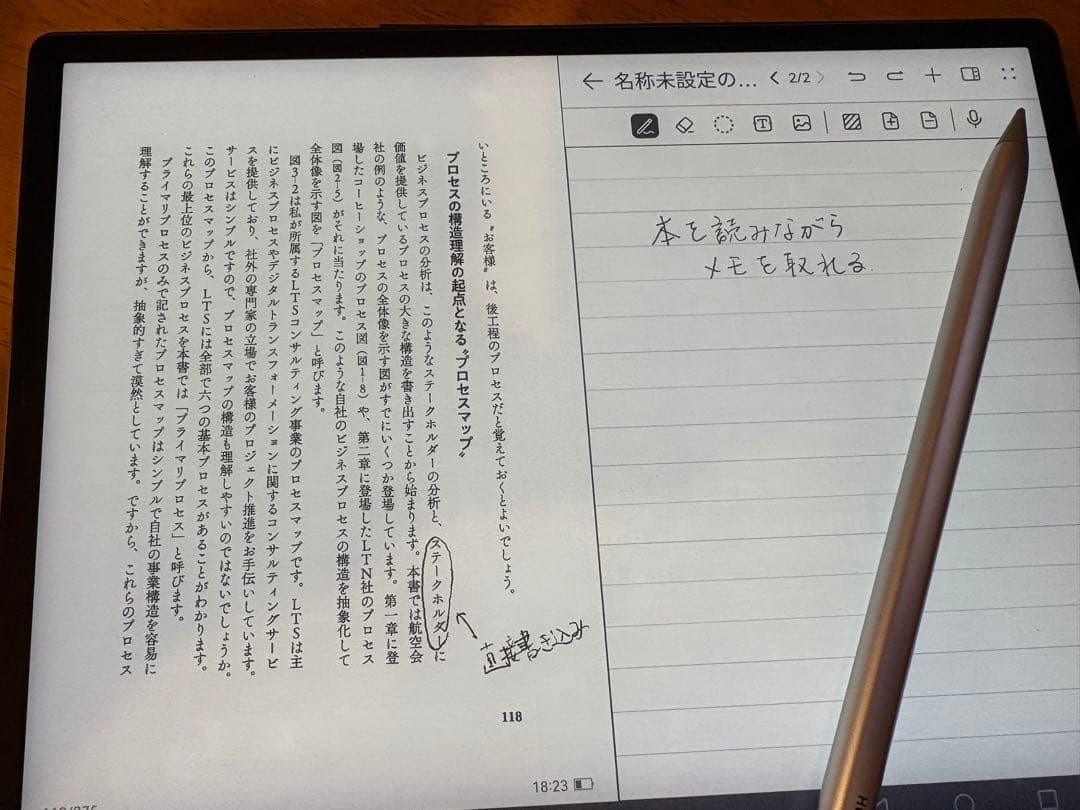 いところにいる〝お客様〟は、後工程のプロセスだと覚えておくとよいでしょう。
プロセスの構造理解の起点となる〝プロセスマップ〟
ビジネスプロセスの分析は、このようなステークホルダーの分析と、ステークホルダーに
価値を提供しているプロセスの大きな構造を書き出すことから始まります。本書では航空会
社の例のような、プロセスの全体像を示す図がすでにいくつか登場しています。第一章に登
場したコーヒーショップのプロセス図（図1-8）や、第二章に登場したLTN社のプロセス
図（図2-5）がそれに当たります。このような自社のビジネスプロセスの構造を抽象化して
全体像を示す図を「プロセスマップ」と呼びます。
図3-2は私が所属するLTSコンサルティング事業のプロセスマップです。LTSは主
にビジネスプロセスやデジタルトランスフォーメーションに関するコンサルティングサービ
スを提供しており、社外の専門家の立場でお客様のプロジェクト推進をお手伝いしています。
サービスはシンプルですので、プロセスマップの構造も理解しやすいのではないでしょうか。
このプロセスマップから、LTSには全部で六つの基本プロセスがあることがわかります。
これらの最上位のビジネスプロセスを本書では「プライマリプロセス」と呼びます。
プライマリプロセスのみで記されたプロセスマップはシンプルで自社の事業構造を容易に
理解することができますが、抽象的すぎて漠然としています。ですから、これらのプロセス
直接書き込み
118
18:23
← 名称未設定の... 2/2
T
本を読みながら
メモを取れる.